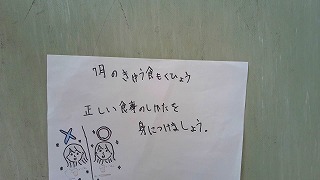 7月のきゅう食もくひょう
正しい食事のしかたを
身につけましょう。